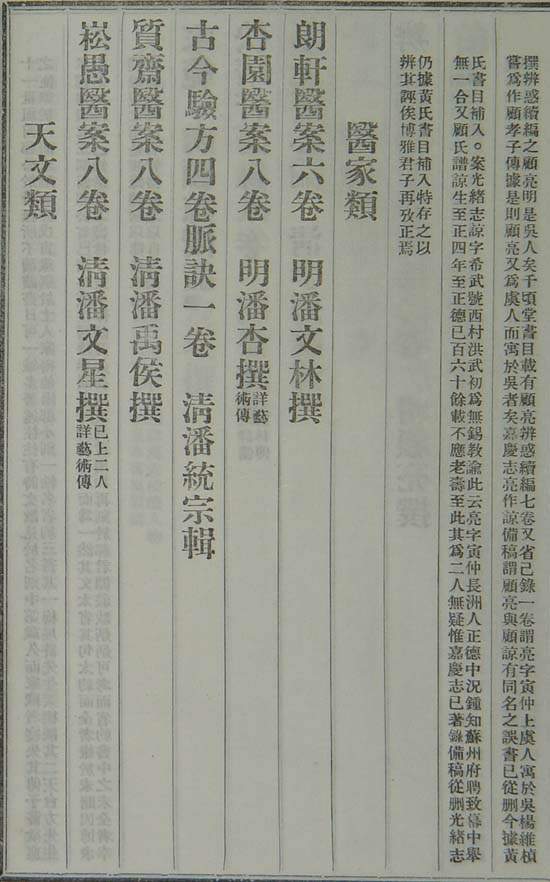 撰辨惑續編之顧亮明是吳人矣千頃堂書目載有顧亮辨惑續編七卷又省己錄一卷謂亮字寅仲上虞人寓於吳楊維楨
嘗爲作顧孝子傳據是則顧亮又爲虞人而寓於吳者矣嘉慶志亮作諒備稿謂顧亮與顧諒有同名之誤書已從刪今據黃
氏書目補入○案光緒志諒字希武號西村洪武初爲無錫教諭此云亮字寅仲長洲人正德中況鍾知蘇州府聘致幕中舉
無一合又顧氏譜諒生至正四年至正德已百六十餘載不應老壽至此其爲二人無疑惟嘉慶志已著錄備稿從刪光緒志
仍據黃氏書目補入特存之以
辨其誣俟博雅君子再攷正焉
醫家類
朗軒醫案六卷 明潘文林撰
杏園醫案八卷 明潘杏撰詳藝術傳
古今驗方四卷脈訣一卷 清潘統宗輯
質齋醫案八卷 清潘禹侯撰
崧愚醫案八卷 清潘文星撰已上二人詳藝術傳
天文類